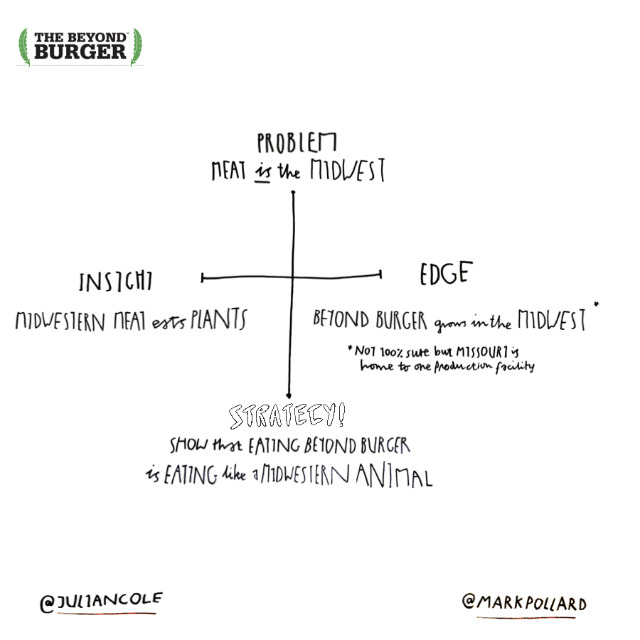 THE BEYOND
BURGER
PROBLEM
MEAT is the MIDWEST
INSIGHT
EDGE
MIDWESTERN MEAT eats PLANTS
BEYOND BURGER grows in the MIDWEST *
*NOT 100% sure but MISSOURI is
home to one production facility
STRATEGY!
SHOW that EATING BEYOND BURGER
is EATING like a MIDWESTERN ANIMAL
@JULIANCOLE
@MARKPOLLARD